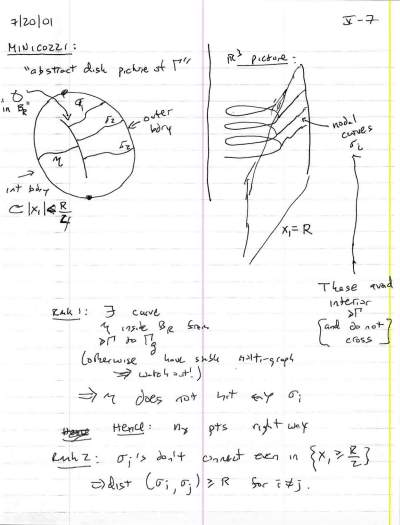 7/20/01
V-7
MINICOZZI:
"abstract disk picture of Γ"
R³ picture:
in B_R
σ₁
σ₂
outer
bdry
η
int bdry
⊂ |x₁| ≤ R/4
nodal
curves
σ_i
x₁ = R
These avoid
interior
{and do not
cross}
Rmk 1: ∃ curve
η inside B_R from
to
(otherwise have stable multi-graph
⇒ watch out!)
⇒ η does not hit any σ_i
Hence: η pts right way
Rmk 2: σ_i's don't connect even in {x₁ ≥ R/2}
⇒ dist (σ_i, σ_j) ≥ R for i ≠ j.